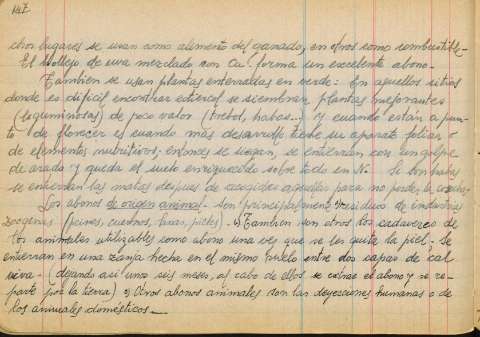 147
chos lugares se usan como alimento del ganado, en otros como combustible.-
El hollejo de uva mezclado con Ca forma un excelente abono.-
Tambien se usan plantas enterradas en verde: En aquellos sitios
donde es difícil encontrar estiercol se siembran plantas mejorantes
(leguminosas) de poco valor (trebol, habas...) y cuando están a pun-
to de florecer es cuando más desarrollo tiene su aparato foliar o
de elementos nutritivos, entonces se siegan, se entierran con un golpe
de arado y queda el suelo enriquecido sobre todo en N.- Si son habas
se entierran las matas despues de recogidas aquellas para no perder la cosecha.-
Los abonos de origen animal.- Son principalmente residuos de industrias
zoogenas (peines, cuernos, lanas, pieles).- Tambien son otros los cadaveres de
los animales utilizables como abono una vez que se les quita la piel.- Se
entierran en una zanja hecha en el mismo suelo entre dos capas de cal
viva.- (dejando asi unos seis meses, al cabo de ellos se extrae el abono y se re-
parte por la tierra) Otros abonos animales son las deyecciones humanas o de
los animales domésticos.-